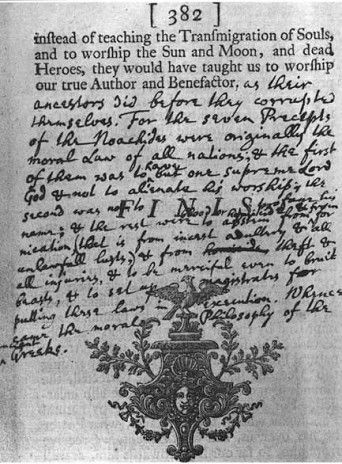 [ 382 ]
instead of teaching the Transmigration of Souls,
and to worship the Sun and Moon, and dead
Heroes, they would have taught us to worship
our true Author and Benefactor, as their
ancestors did before they corrupted
themselves. For the seven Precepts
of the Noachides were originally the
moral Law of all nations; & the first
of them was to have but one supreme Lord
God & not to alienate his worship; the
second was not to profane his
FINIS.
name; & the rest were to abstain from blood or homicide & from for
nication, (that is from incest adultery & all
unlawfull lusts,) & from theft &
all injuries, & to be mercifull even to bruit
beasts, & to set up magistrates for
putting these laws in execution. Whence
came the moral Philosophy of the
Greeks.